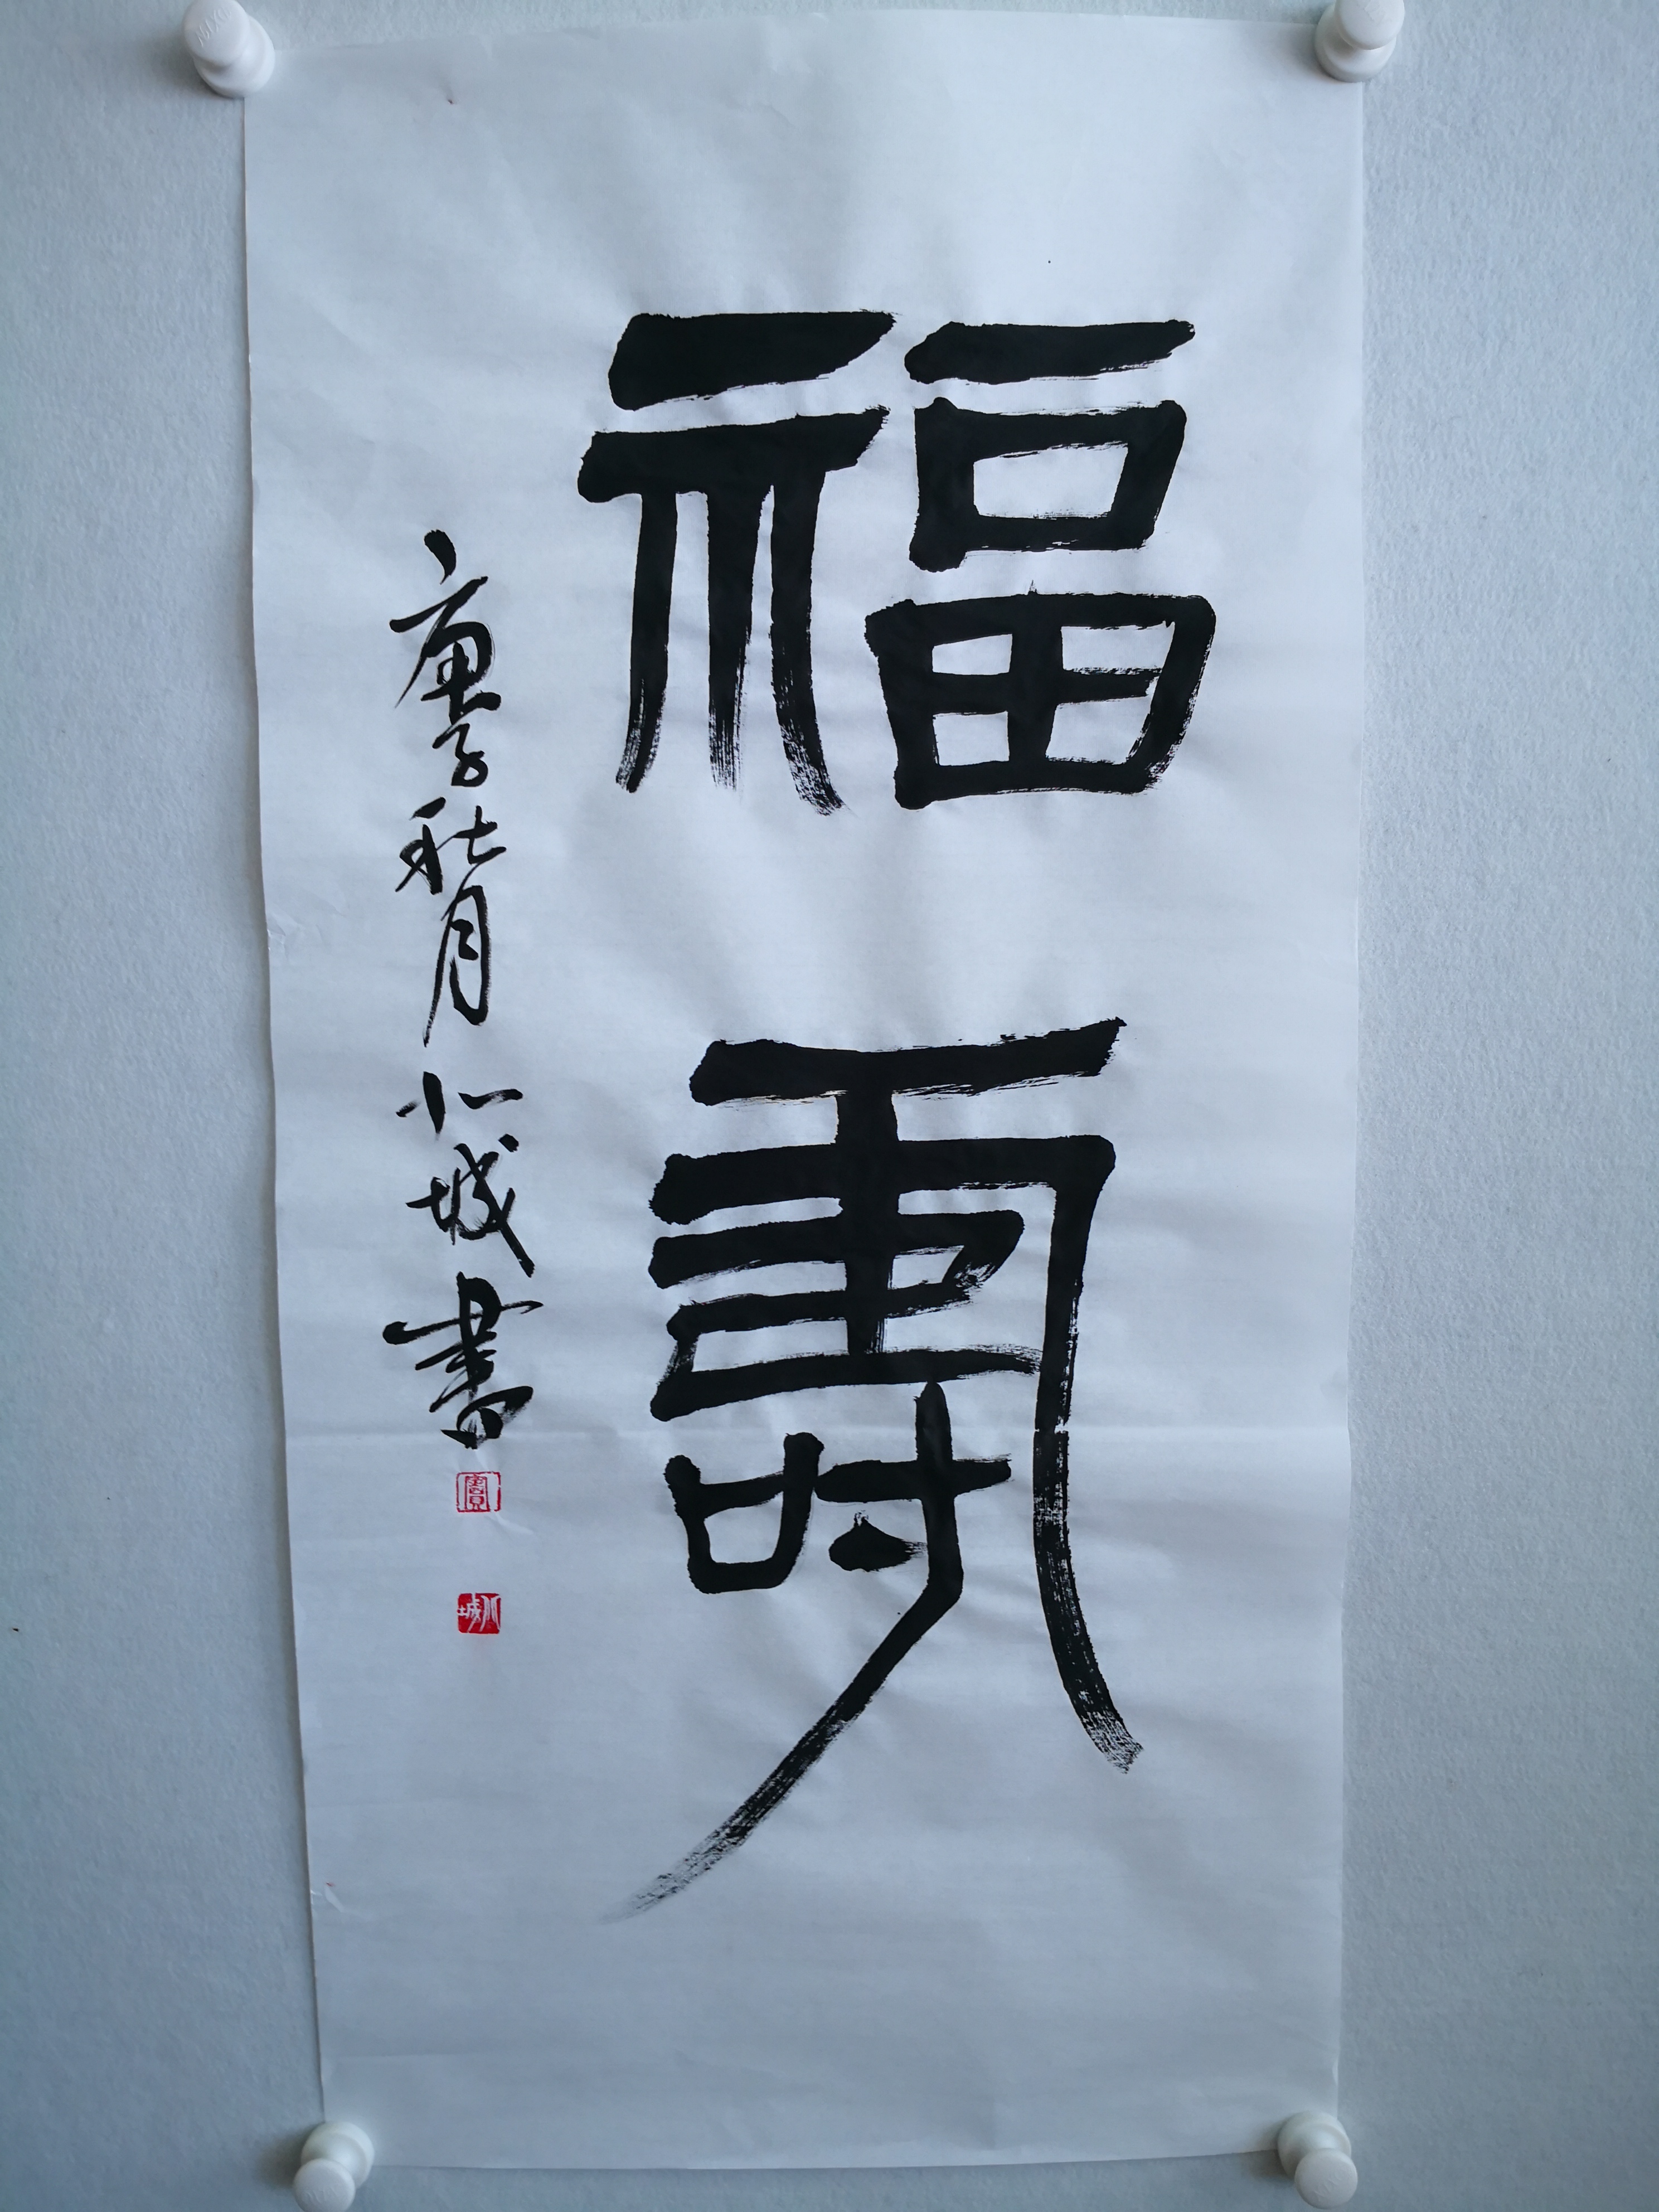 福壽
庚子秋月小城書
小城